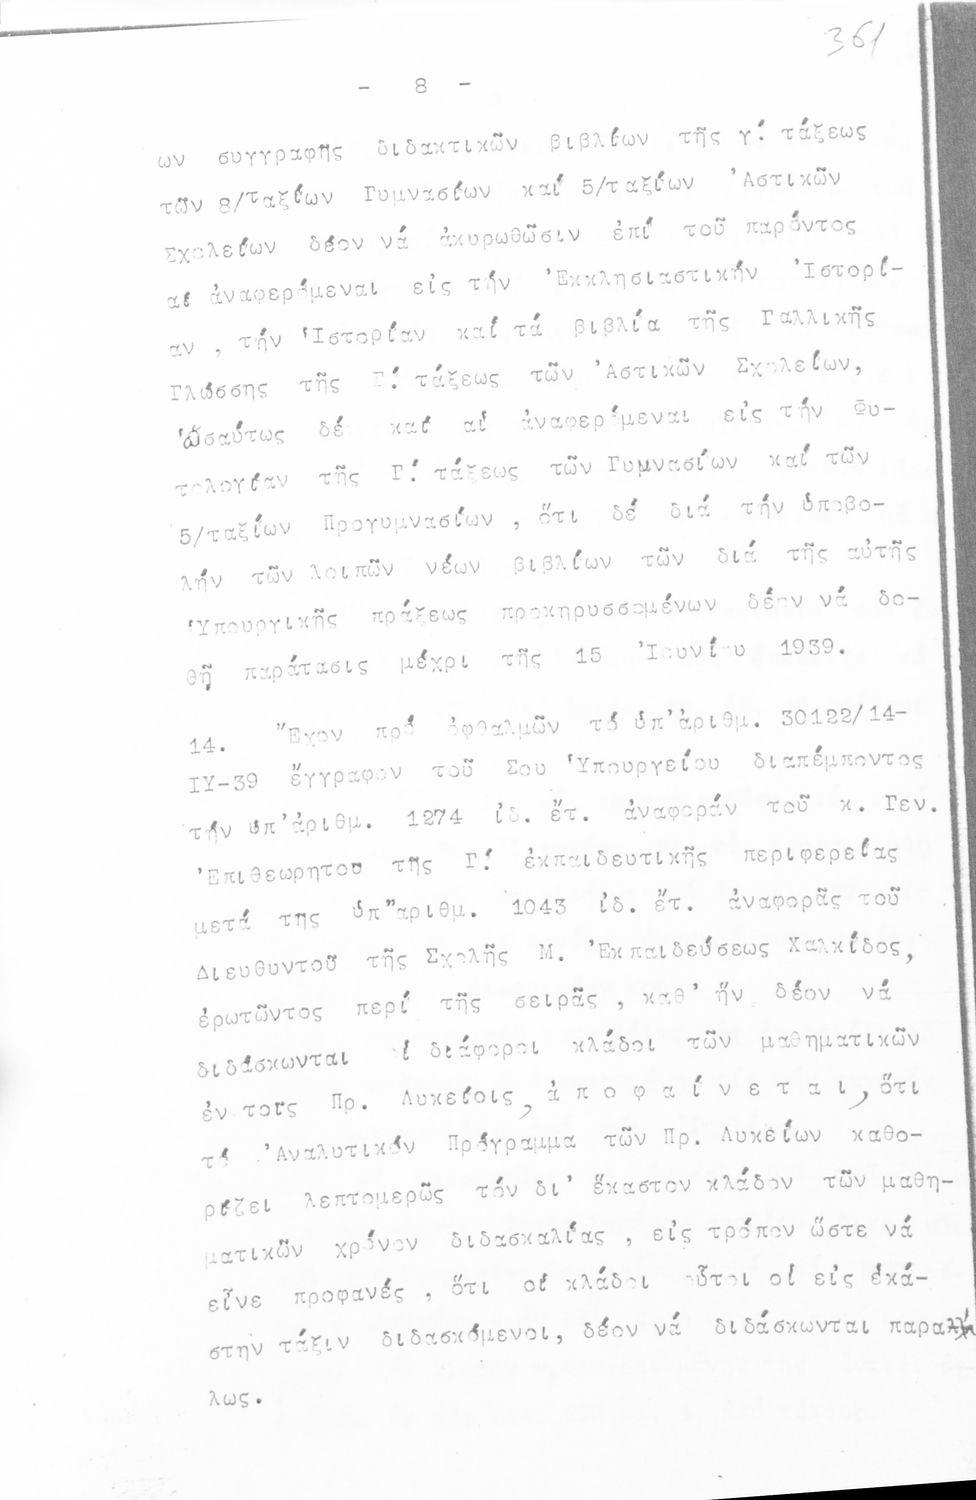 361
- 8 -
ων συγγραφῆς διδακτικῶν βιβλίων τῆς γ΄. τάξεως
τῶν 8/ταξίων Γυμνασίων καί 5/ταξίων Ἀστικῶν
Σχολείων δέον νά ἀκυρωθῶσιν ἐπί τοῦ παρόντος
αἱ ἀναφερόμεναι εἰς τήν Ἐκκλησιαστικήν Ἱστορί-
αν , τήν Ἱστορίαν καί τά βιβλία τῆς Γαλλικῆς
Γλώσσης τῆς Γ΄. τάξεως τῶν Ἀστικῶν Σχολείων,
Ὡσαύτως δέ καί αἱ ἀναφερόμεναι εἰς τήν Φυ-
τολογίαν τῆς Γ΄. τάξεως τῶν Γυμνασίων καί τῶν
5/ταξίων Προγυμνασίων , ὅτι δέ διά τήν ὑποβο-
λήν τῶν λοιπῶν νέων βιβλίων τῶν διά τῆς αὐτῆς
Ὑπουργικῆς πράξεως προκηρυσσομένων δέον νά δο-
θῇ παράτασις μέχρι τῆς 15 Ἰουνίου 1939.
14. Ἔχον πρό ὀφθαλμῶν τό ὑπ' ἀριθμ. 30122/14-
ΙΥ-39 ἔγγραφον τοῦ Σου Ὑπουργείου διαπέμποντος
τήν ὑπ' ἀριθμ. 1274 ἰδ. ἔτ. ἀναφοράν τοῦ κ. Γεν.
Ἐπιθεωρητοῦ τῆς Γ΄. ἐκπαιδευτικῆς περιφερείας
μετά της ὑπ" αριθμ. 1043 ἰδ. ἔτ. ἀναφορᾶς τοῦ
Διευθυντοῦ τῆς Σχολῆς Μ. Ἐκπαιδεύσεως Χαλκίδος,
ἐρωτῶντος περί τῆς σειρᾶς , καθ' ἥν δέον νά
διδάσκωνται οἱ διάφοροι κλάδοι τῶν μαθηματικῶν
ἐν τοῖς Πρ. Λυκείοις, ἀ π ο φ α ί ν ε τ α ι, ὅτι
τό Ἀναλυτικόν Πρόγραμμα τῶν Πρ. Λυκείων καθο-
ρίζει λεπτομερῶς τόν δι' ἕκαστον κλάδον τῶν μαθη-
ματικῶν χρόνον διδασκαλίας , εἰς τρόπον ὥστε νά
εἶνε προφανές , ὅτι οἱ κλάδοι οὗτοι οἱ εἰς ἑκά-
στην τάξιν διδασκόμενοι, δέον νά διδάσκωνται παραλλή
λως.